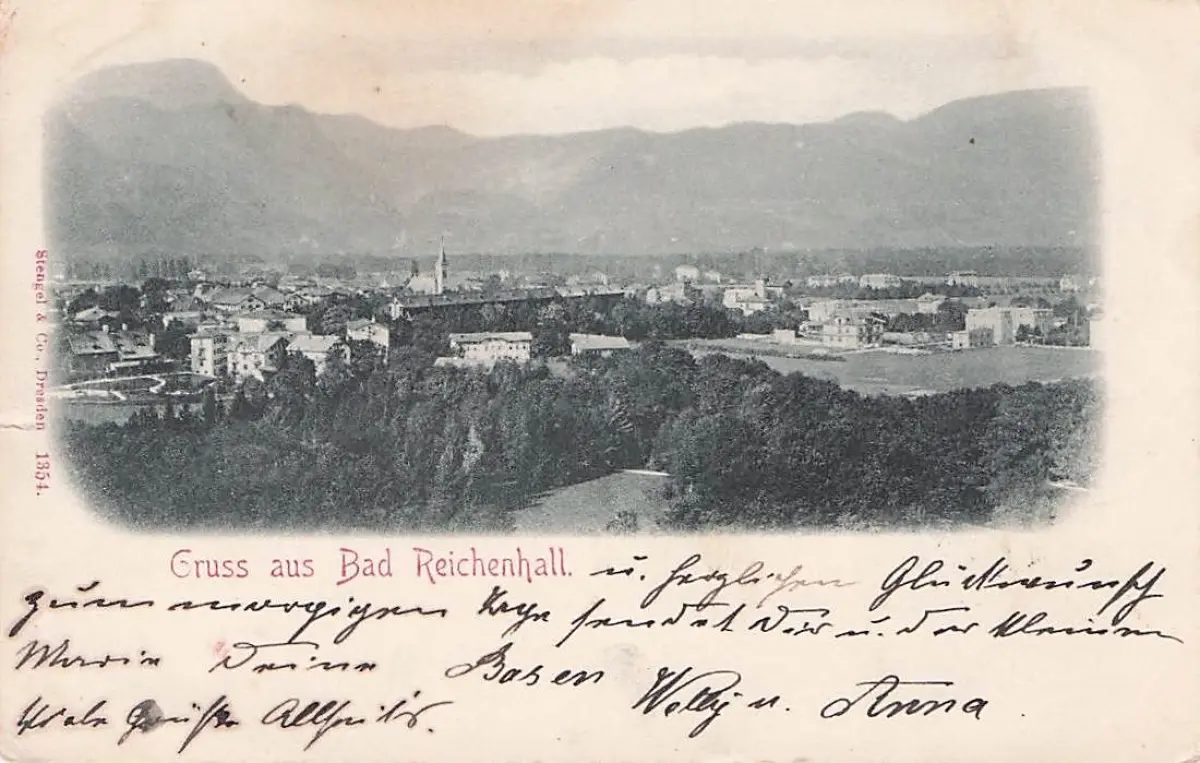 Stengel & Co., Dresden 1354.
Gruss aus Bad Reichenhall. u. herzlichen Glückwunsch
zum morgigen Tage sendet Dir u. der kleinen
Marie Deine Basen Welly u. Anna
Viele Grüße Allseits.